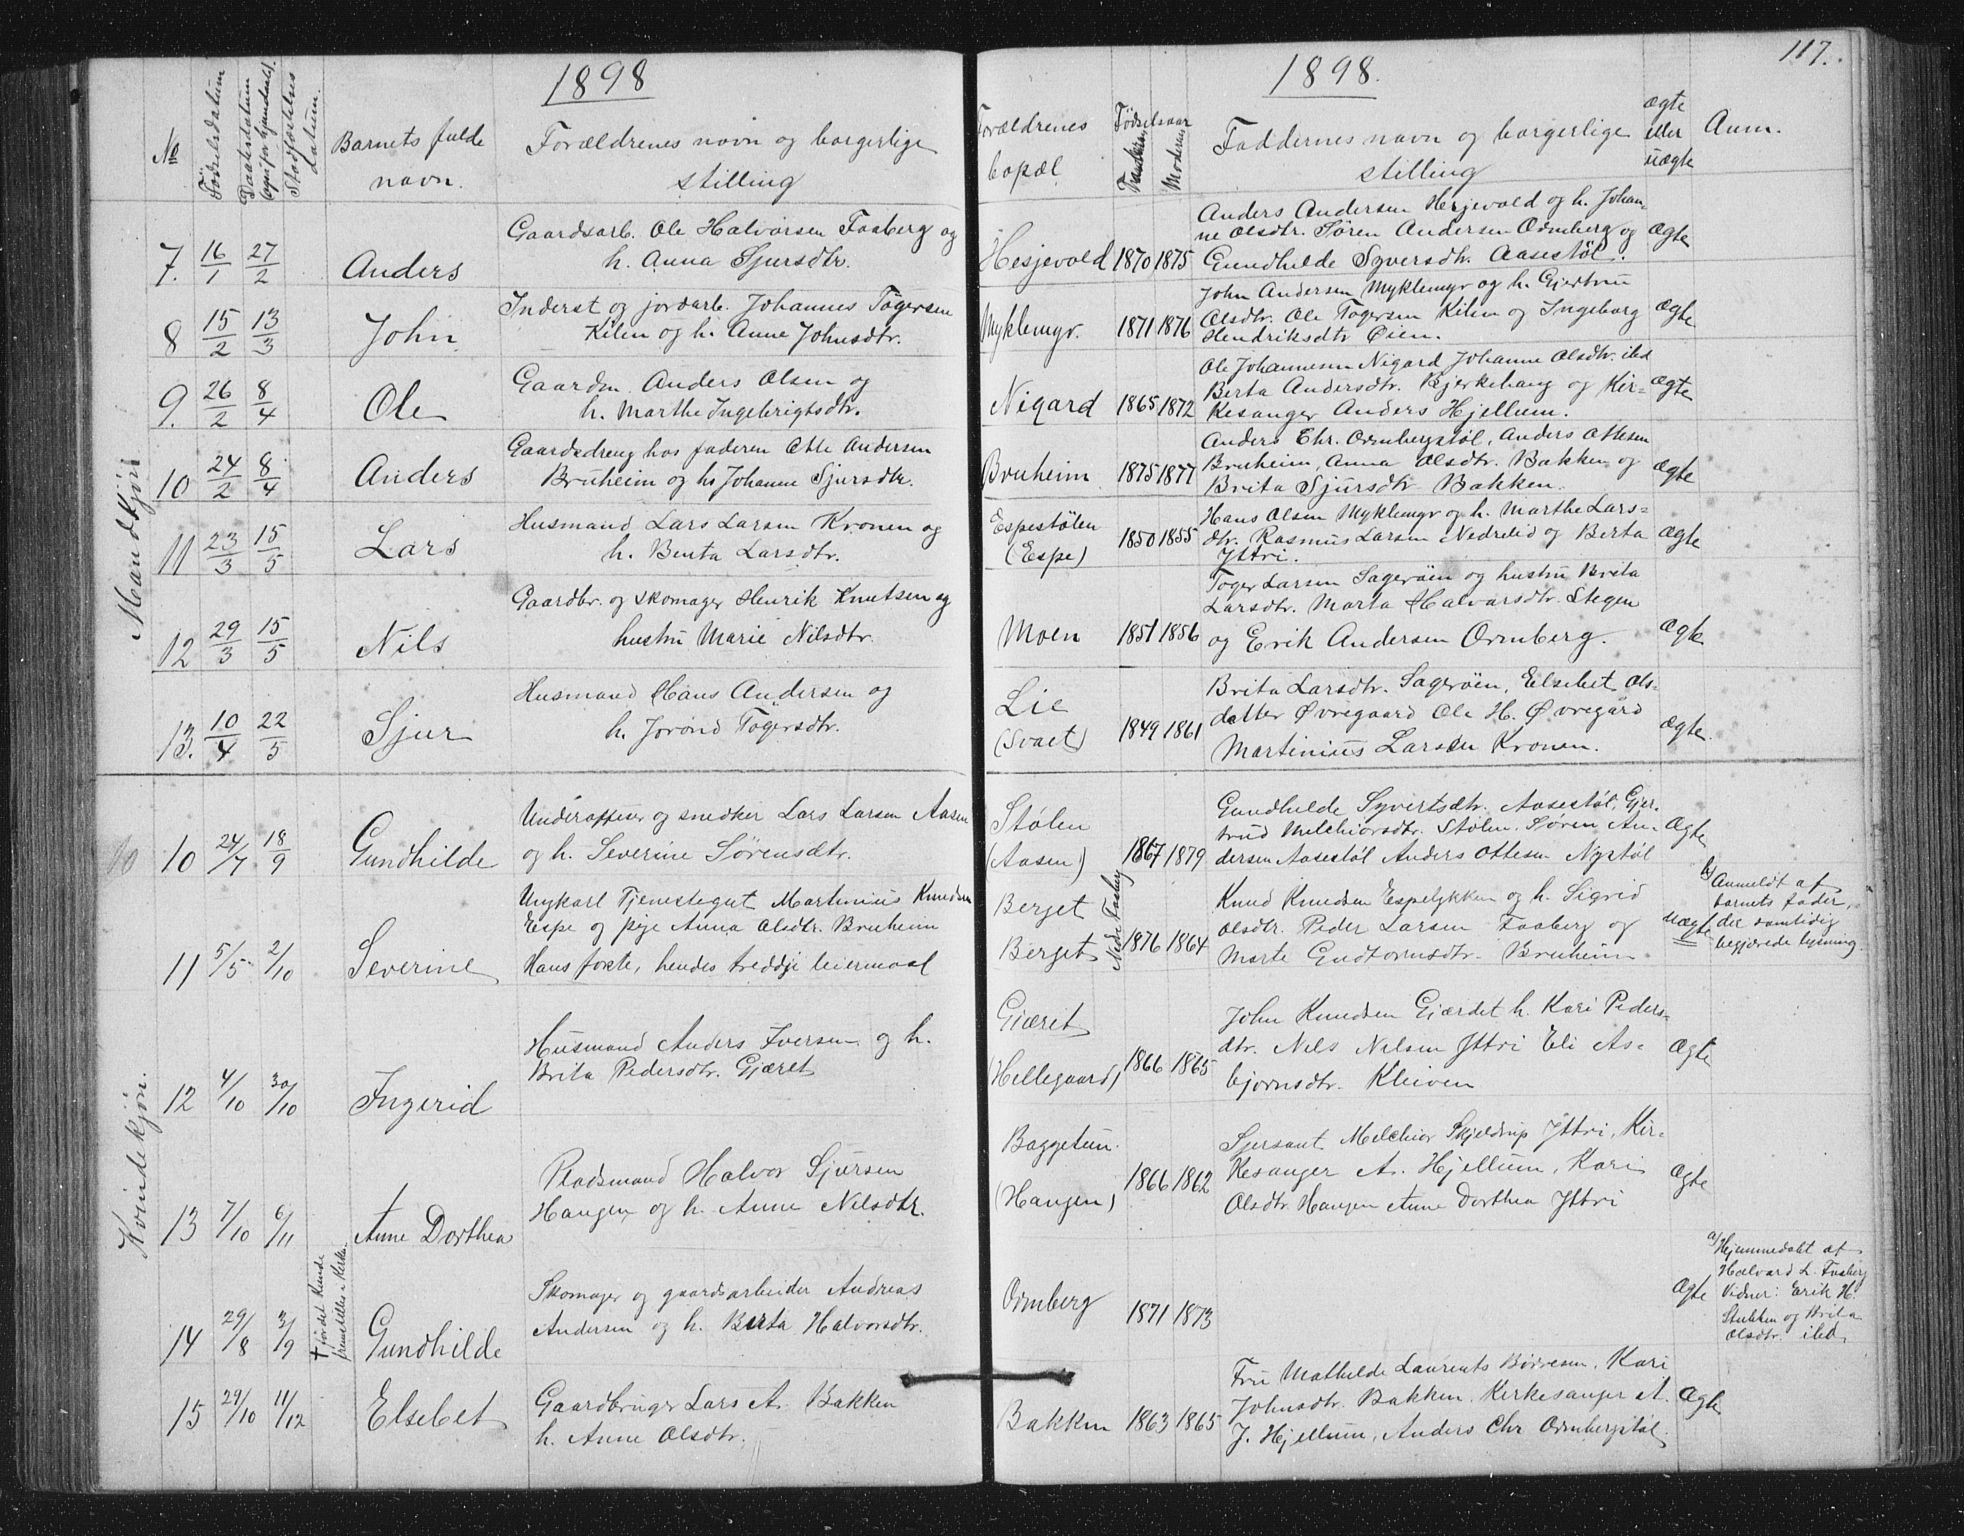 117.
1898
1898.
No
Fødselsdatum
Daabsdatum
Dødfødselens datum.
Barnets fulde navn.
Forældrenes navn og borgerlige stilling
Forældrenes bopæl
Fødselsaar
Faderen
Moderen
Faddernes navn og borgerlige stilling
ægte eller uægte
Anm.
Mandkjøn
7. 16/1 27/2 Anders
Gaardsarb. Ole Halvorsen Faaberg og
h. Anna Sjursdtr.
Hesjevold 1870 1875
Anders Andersen Hesjevold og h. Johan-
ne Olsdtr. Søren Andersen Ormberg og
Gundhilde Syversdtr. Aasestøl.
Ægte
8 15/2 13/3 John
Inderst og jordarb. Johannes Tøgersen
Kilen og h. Anne Johnsdtr.
Myklemyr. 1871 1876
John Andersen Myklemyr og h. Gjertru
Olsdtr. Ole Tøgersen Kilen og Ingeborg
Hendriksdtr Øien.
Ægte
9. 26/2 8/4 Ole
Gaardm. Anders Olsen og
h. Marthe Ingebrigtsdtr.
Nigard 1865 1872
Ole Johannesen Nigard Johanne Olsdtr. ibd
Berta Andersdtr. Bjerkehaug og Kir=
kesanger Anders Hjellum.
Ægte
10 24/2 8/4 Anders
Gaardsdreng hos faderen Otte Andersen
Bruheim og h. Johanne Sjursdtr.
Bruheim 1875 1877
Anders Chr. Ormbergstøl, Anders Ottesen
Bruheim, Anna Olsdtr. Bakken og
Brita Sjursdtr Bakken.
Ægte
11 23/3 15/5 Lars
Husmand Lars Larsen Kronen og
h. Berta Larsdtr.
Espestølen
(Espe) 1850 1855
Hans Olsen Myklemyr og h. Marthe Lars=
dtr. Rasmus Larsen Nedrelid og Berta
Yttri.
Ægte
12 29/3 15/5 Nils
Gaardbr. og skomager Henrik Knutsen og
hustru Marie Nilsdtr.
Moen 1851 1856
Tøger Larsen Sagerøen og hustru Brita
Larsdtr. Marta Halvarsdtr. Stegen
og Erik Andersen Ormberg.
Ægte
13. 10/4 22/5 Sjur
Husmand Hans Andersen og
h. Jorønd Tøgersdtr.
Lie
(Svaet) 1849 1861
Brita Larsdtr. Sagerøen, Elsebet Ols-
datter Øvregaard Ole H. Øvregård
Martinius Larsen Kronen.
Ægte.
Kvindekjøn.
10 24/7 18/9 Gundhilde
Underofficer og snedker Lars Larsen Aasen
og h. Severine Sørensdtr.
Stølen
(Aasen) 1867 1879
Gundhilde Syvertsdtr. Aasestøl, Gjer-
trud Melchiorsdtr. Stølen. Søren An-
dersen Aasestøl Anders Ottesen Nystøl
Ægte
11 5/5 2/10 Severine
Ungkarl Tjenestegut Martinius Knudsen
Espe og pige Anna Olsdtr. Bruheim
Hans første, hendes tredje leiermaal
Berget
Berget
1876 1864
Knud Knudsen Espelykken og h. Sigrid
Olsdtr. Peder Larsen Faaberg og
Marte Gudtormsdtr. Bruheim
uægte
b) Anmeldt af
barnets fader,
der samtidig
begjærede lysning.
12 4/10 30/10 Ingerid
Husmand Anders Iversen og h.
Brita Pedersdtr. Gjæret
Gjæret
(Hellegaard) 1866 1865
John Knudsen Gjærdet h. Kari Peders-
dtr. Nils Nilsen Yttri Eli As-
bjørnsdtr. Kleiven
Ægte
13 7/10 6/11 Anne Dorthea
Pladsmand Halvor Sjursen
Haugen og h. Anne Nilsdtr.
Baggetun.
(Haugen) 1866 1862
Sjersant Melchior Skjeldrup Yttri, Kir-
kesanger A. Hjellum, Kari
Olsdtr. Haugen Anne Dorthea Yttri
Ægte
14 29/8 3/9
† før det kunde
fremstilles i Kirke.
Gundhilde
Skomager og gaardsarbeider Andreas
Andersen og h. Berta Halvorsdtr.
Ormberg 1871 1873
Ægte
a) Hjemmedøbt af
Halvard L. Faaberg
Vidner: Erik H.
Stukken og Brita
Olsdtr. ibd
15 29/10 11/12 Elsebet
Gaardbruger Lars A. Bakken
h. Anne Olsdtr.
Bakken 1863 1865
Fru Mathilde Laurents Børresen, Kari
Johnsdtr. Bakken, Kirkesanger A.
J. Hjellum, Anders Chr Ormbergstøl.
Ægte